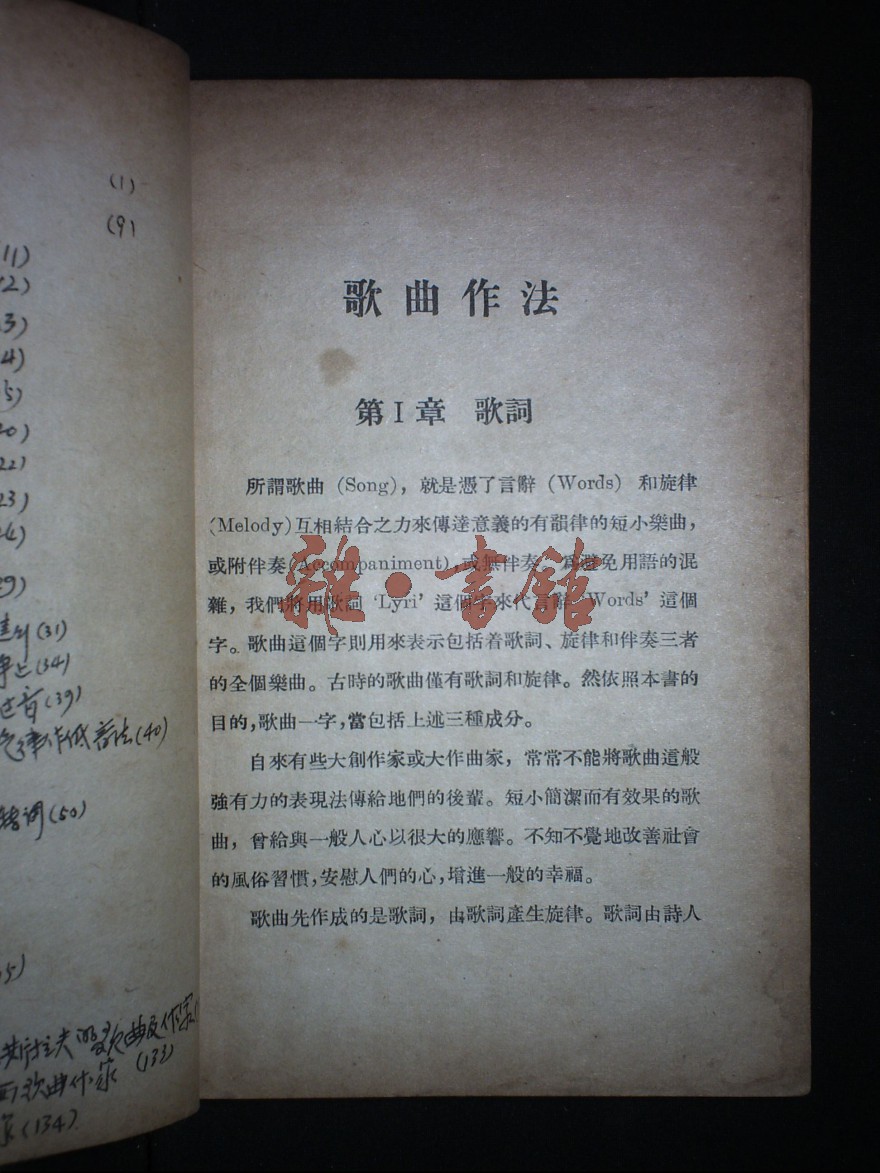 (1)
(9)
11)
2)
3)
4)
5)
20)
22)
23)
24)
29)
(31)
(34)
(39)
律作低音法(40)
(50)
5)
夫的歌曲及作家
歌曲作家 (133)
家(134)
歌曲作法
第I章 歌詞
所謂歌曲 (Song)，就是憑了言辭 (Words) 和旋律
(Melody)互相結合之力來傳達意義的有韻律的短小樂曲，
或附伴奏(Accompaniment)，或無伴奏。爲避免用語的混
雜，我們將用歌詞 'Lyri' 這個字來代言辭 'Words' 這個
字。歌曲這個字則用來表示包括着歌詞、旋律和伴奏三者
的全個樂曲。古時的歌曲僅有歌詞和旋律。然依照本書的
目的，歌曲一字，當包括上述三種成分。
自來有些大創作家或大作曲家，常常不能將歌曲這般
強有力的表現法傳給地們的後輩。短小簡潔而有效果的歌
曲，曾給與一般人心以很大的應響。不知不覺地改善社會
的風俗習慣，安慰人們的心，增進一般的幸福。
歌曲先作成的是歌詞，由歌詞產生旋律。歌詞由詩人
雜·書館